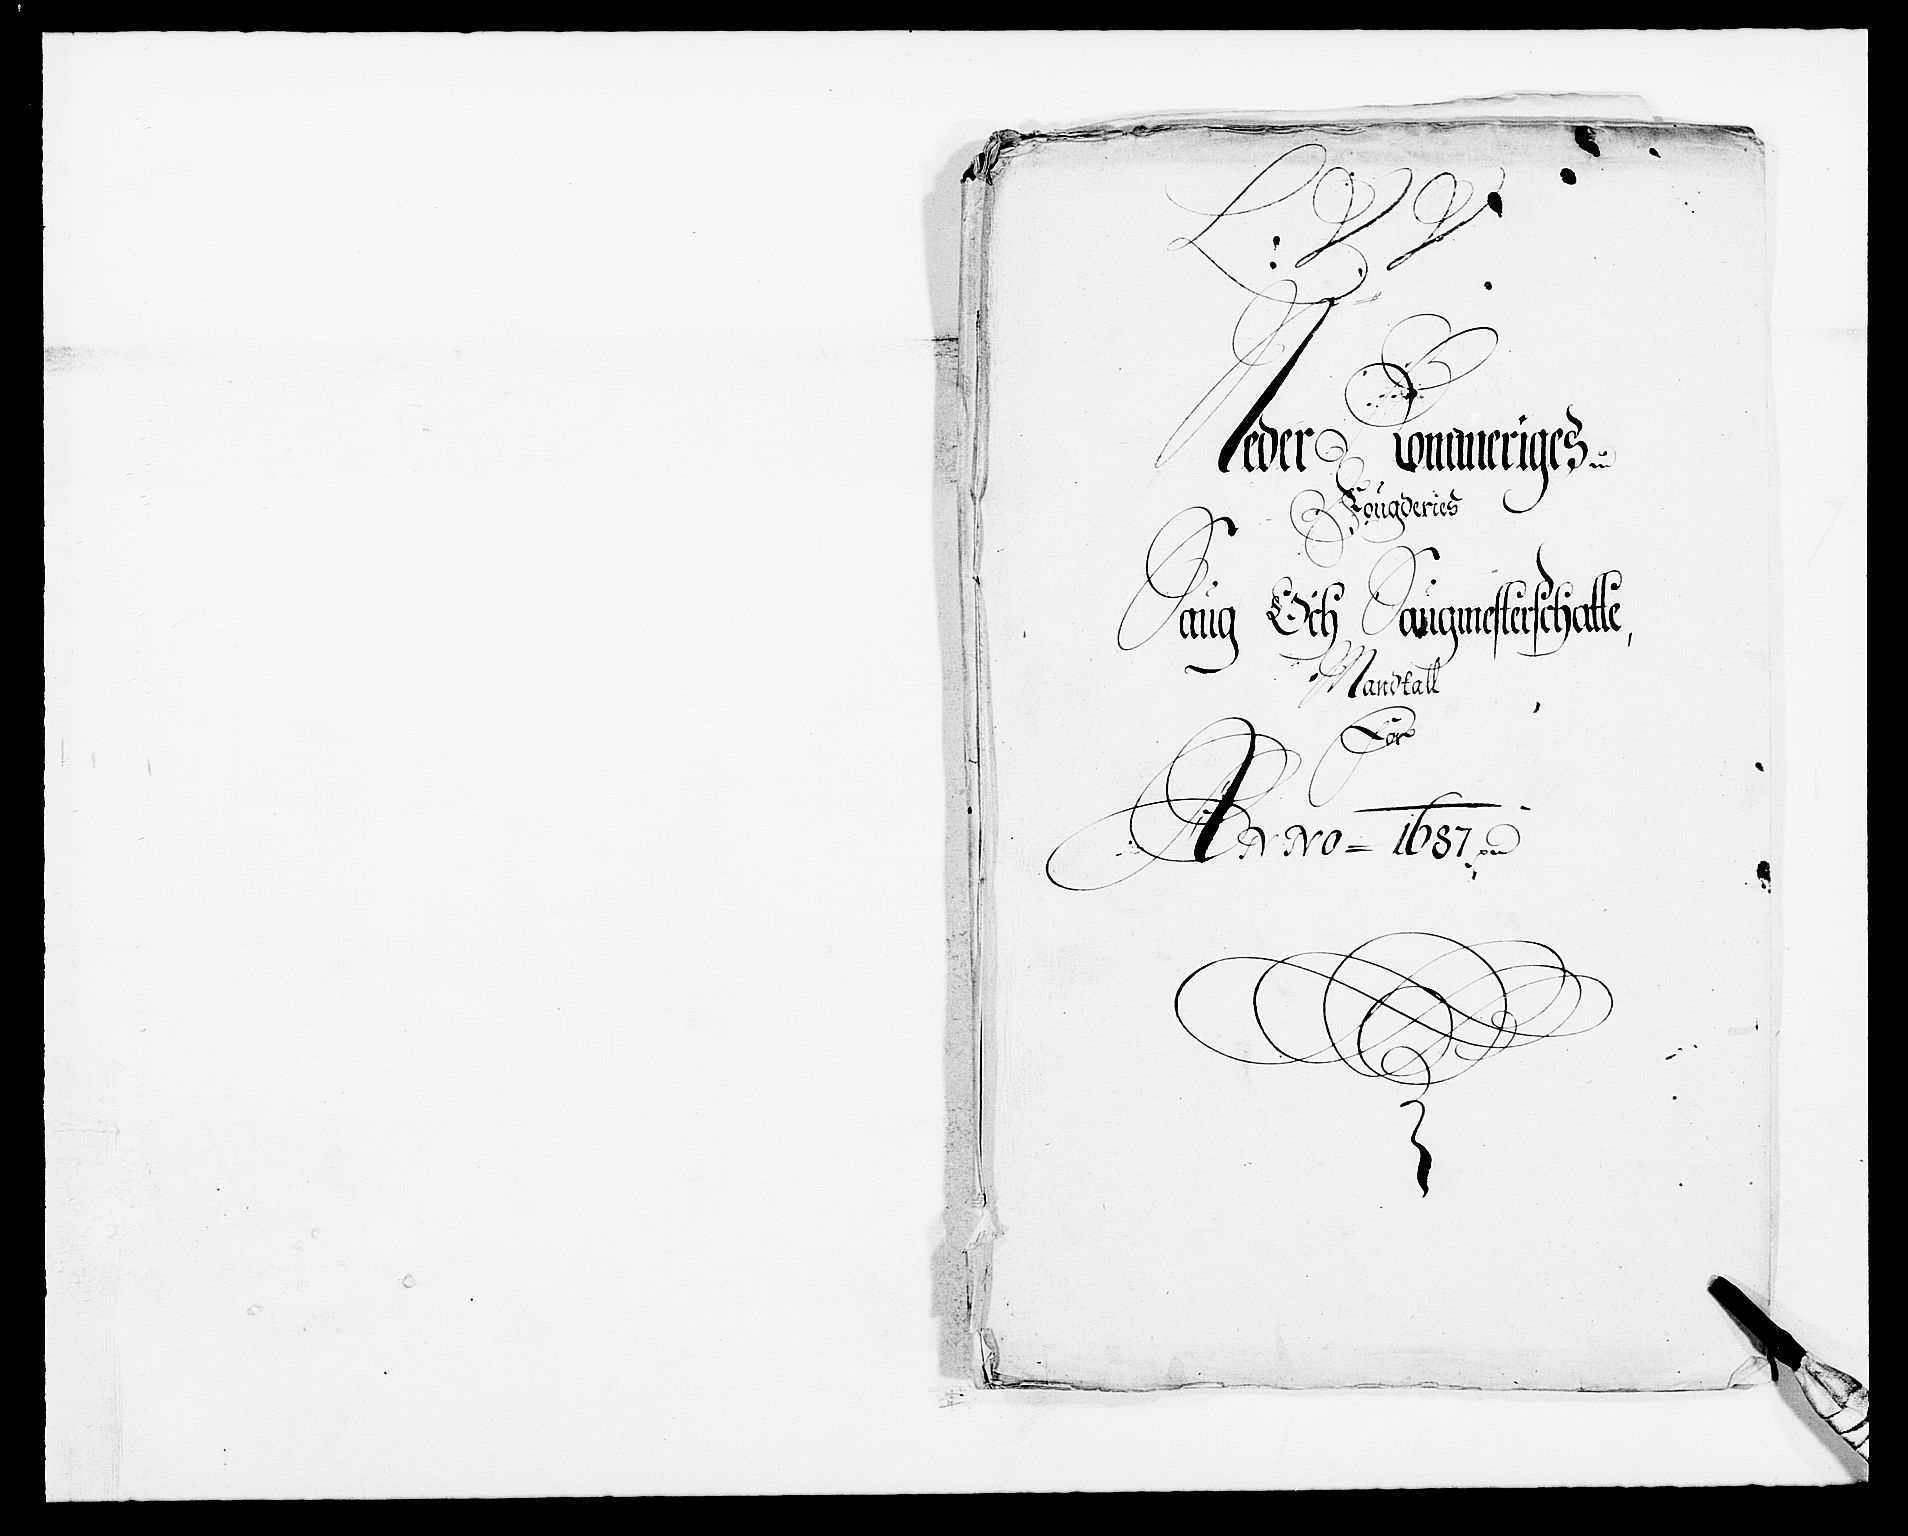 L: V V
Neder Rommeriges
Fougderies
Saug Och Saugmesterschatte,
Mandtall
For
ANNO = 1687